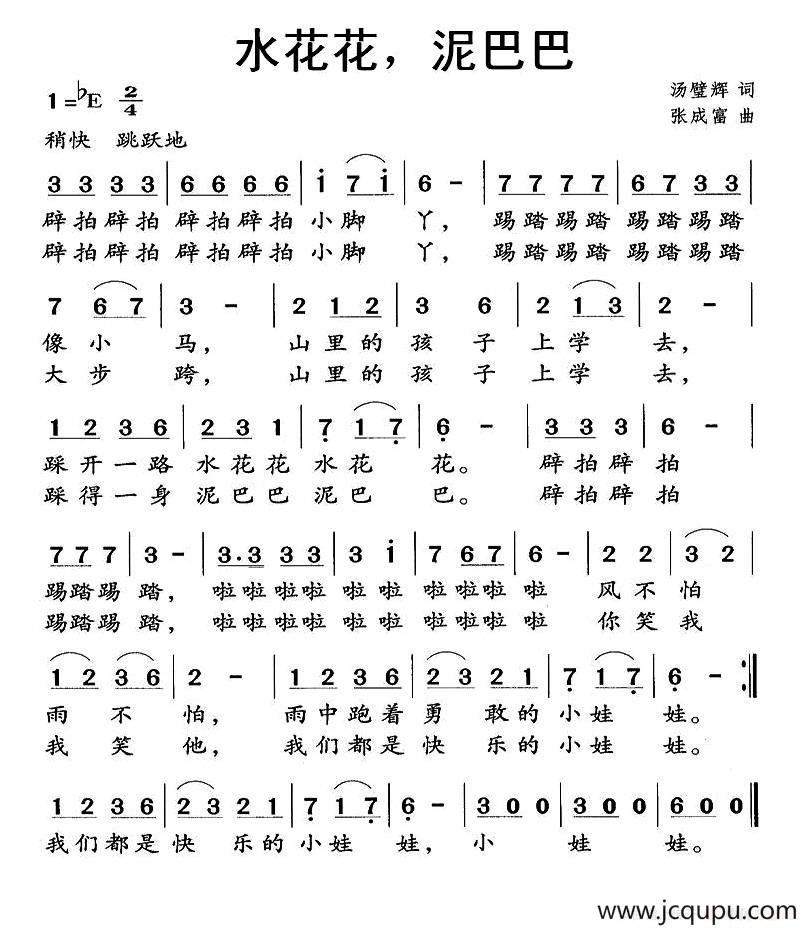 水花花，泥巴巴
1=♭E 2/4
汤璧辉 词
张成富 曲
稍快 跳跃地
3 3 3 3 | 6 6 6 6 | i 7 i | 6 - | 7 7 7 7 | 6 7 3 3 |
辟拍辟拍 辟拍辟拍 小脚 丫， 踢踏踢踏 踢踏踢踏
辟拍辟拍 辟拍辟拍 小脚 丫， 踢踏踢踏 踢踏踢踏
7 6 7 | 3 - | 2 1 2 | 3 6 | 2 1 3 | 2 - |
像小 马， 山里的 孩子 上学 去，
大步 跨， 山里的 孩子 上学 去，
1 2 3 6 | 2 3 1 | 7̣ 1 7̣ | 6̣ - | 3 3 3 3 6 |
踩开一路 水花花 水花 花。 辟拍辟拍
踩得一身 泥巴巴 泥巴 巴。 辟拍辟拍
7 7 7 7 | 3 - | 3·3 3 3 | 3 i | 7 6 7 | 6 - | 2 2 | 3 2 |
踢踏踢踏， 啦啦啦啦 啦啦 啦啦啦 啦 风不怕
踢踏踢踏， 啦啦啦啦 啦啦 啦啦啦 啦 你笑我
1 2 3 6 | 2 - | 1 2 3 6 | 2 3 2 1 | 7̣ 1 7̣ | 6̣ - :|
雨不怕， 雨中跑着 勇敢的 小娃 娃。
我笑他， 我们都是 快乐的 小娃 娃。
1 2 3 6 | 2 3 2 1 | 7̣ 1 7̣ | 6̣ - | 3 0 0 | 3 0 0 | 6 0 0 |
我们都是 快乐的 小娃 娃， 小 娃 娃。
www.jcqupu.com